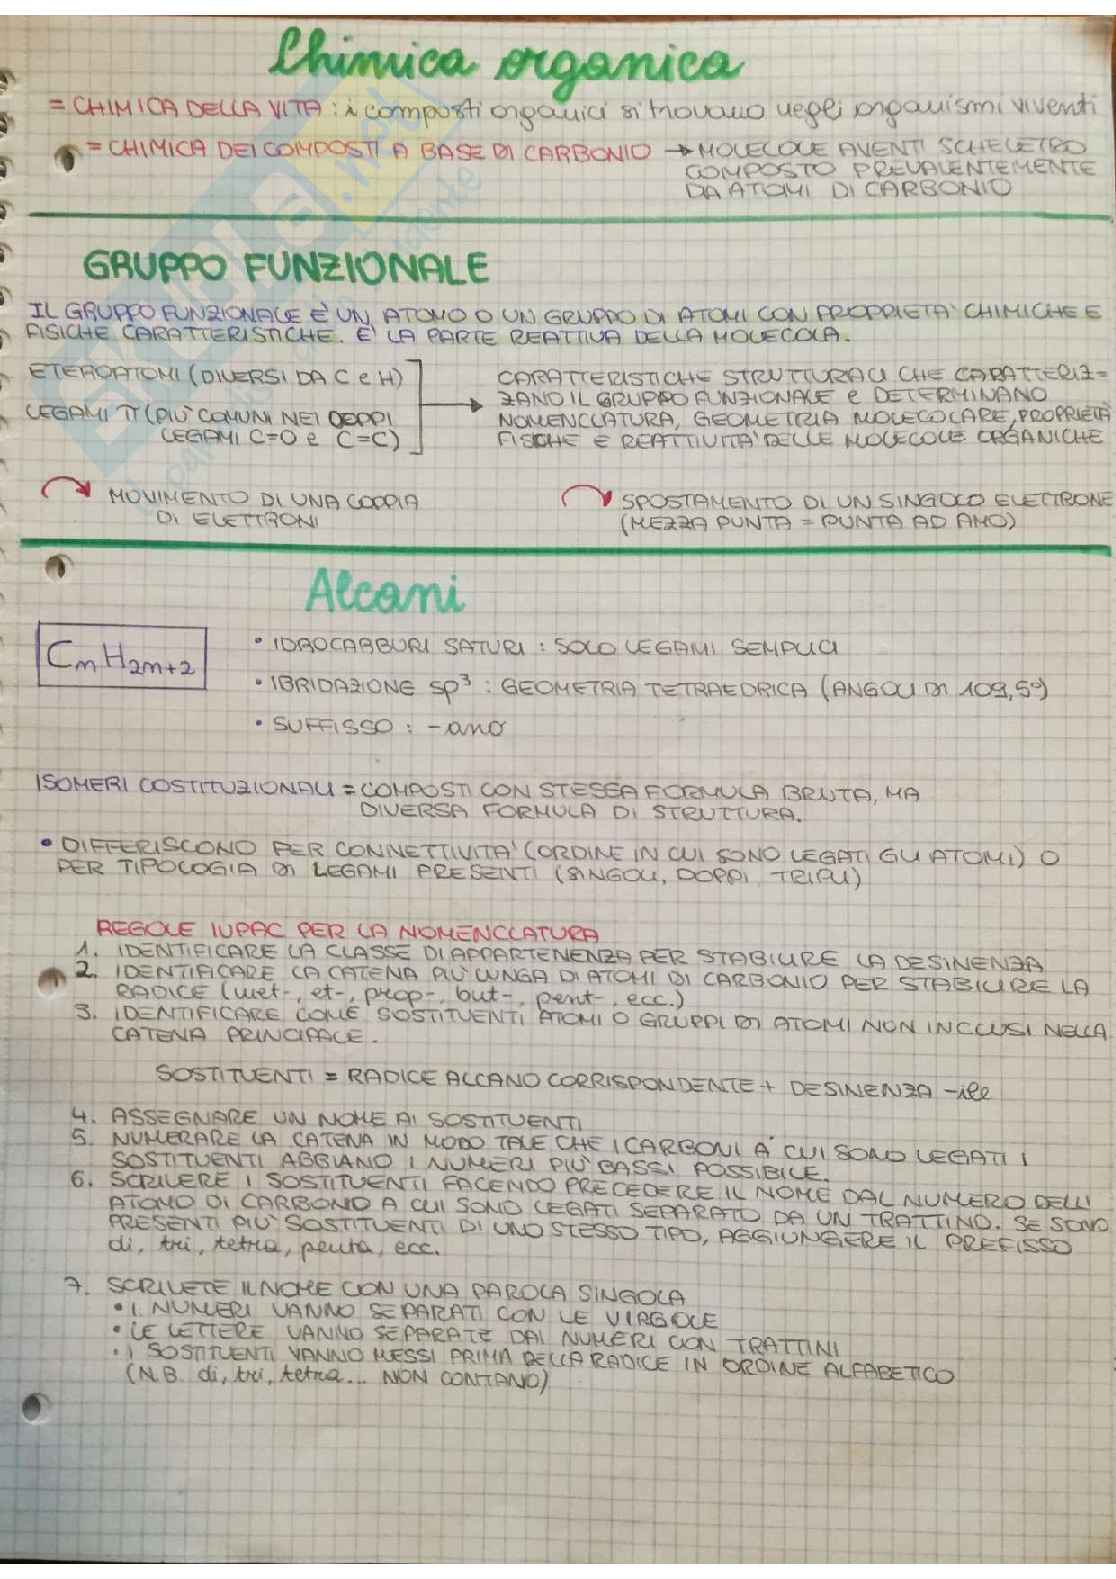 Chimica organica
= CHIMICA DELLA VITA : i composti organici si trovano negli organismi viventi
= CHIMICA DEI COMPOSTI A BASE DI CARBONIO → MOLECOLE AVENTI SCHELETRO
COMPOSTO PREVALENTEMENTE
DA ATOMI DI CARBONIO
GRUPPO FUNZIONALE
IL GRUPPO FUNZIONALE E' UN ATOMO O UN GRUPPO DI ATOMI CON PROPRIETA' CHIMICHE E
FISICHE CARATTERISTICHE. E' LA PARTE REATTIVA DELLA MOLECOLA.
ETEROATOMI (DIVERSI DA C e H)
LEGAMI π (PIU' COMUNI NEI DOPPI
LEGAMI C=O e C=C)
CARATTERISTICHE STRUTTURALI CHE CARATTERIZ=
ZANO IL GRUPPO FUNZIONALE e DETERMINANO
NOMENCLATURA, GEOMETRIA MOLECOLARE, PROPRIETA'
FISICHE E REATTIVITA' DELLE MOLECOLE ORGANICHE
MOVIMENTO DI UNA COPPIA
DI ELETTRONI
SPOSTAMENTO DI UN SINGOLO ELETTRONE
(MEZZA PUNTA = PUNTA AD AMO)
Alcani
CnH2n+2
• IDROCARBURI SATURI : SOLO LEGAMI SEMPLICI
• IBRIDAZIONE sp³ : GEOMETRIA TETRAEDRICA (ANGOLI DI 109,5°)
• SUFFISSO : -ano
ISOMERI COSTITUZIONALI = COMPOSTI CON STESSA FORMULA BRUTA, MA
DIVERSA FORMULA DI STRUTTURA.
• DIFFERISCONO PER CONNETTIVITA' (ORDINE IN CUI SONO LEGATI GLI ATOMI) O
PER TIPOLOGIA DI LEGAMI PRESENTI (SINGOLI, DOPPI, TRIPLI)
REGOLE IUPAC PER LA NOMENCLATURA
1. IDENTIFICARE LA CLASSE DI APPARTENENZA PER STABILIRE LA DESINENZA
2. IDENTIFICARE LA CATENA PIU' LUNGA DI ATOMI DI CARBONIO PER STABILIRE LA
RADICE (met-, et-, prop-, but-, pent-, ecc.)
3. IDENTIFICARE COME SOSTITUENTI ATOMI O GRUPPI DI ATOMI NON INCLUSI NELLA
CATENA PRINCIPALE.
SOSTITUENTI = RADICE ALCANO CORRISPONDENTE + DESINENZA -ile
4. ASSEGNARE UN NOME AI SOSTITUENTI
5. NUMERARE LA CATENA IN MODO TALE CHE I CARBONI A CUI SONO LEGATI I
SOSTITUENTI ABBIANO I NUMERI PIU' BASSI POSSIBILE.
6. SCRIVERE I SOSTITUENTI FACENDO PRECEDERE IL NOME DAL NUMERO DELL'
ATOMO DI CARBONO A CUI SONO LEGATI SEPARATO DA UN TRATTINO. SE SONO
PRESENTI PIU' SOSTITUENTI DI UNO STESSO TIPO, AGGIUNGERE IL PREFISSO
di, tri, tetra, penta, ecc.
7. SCRIVETE IL NOME CON UNA PAROLA SINGOLA
• I NUMERI VANNO SEPARATI CON LE VIRGOLE
• LE LETTERE VANNO SEPARATE DAI NUMERI CON TRATTINI
• I SOSTITUENTI VANNO MESSI PRIMA DELLA RADICE IN ORDINE ALFABETICO
(N.B. di, tri, tetra... NON CONTANO)